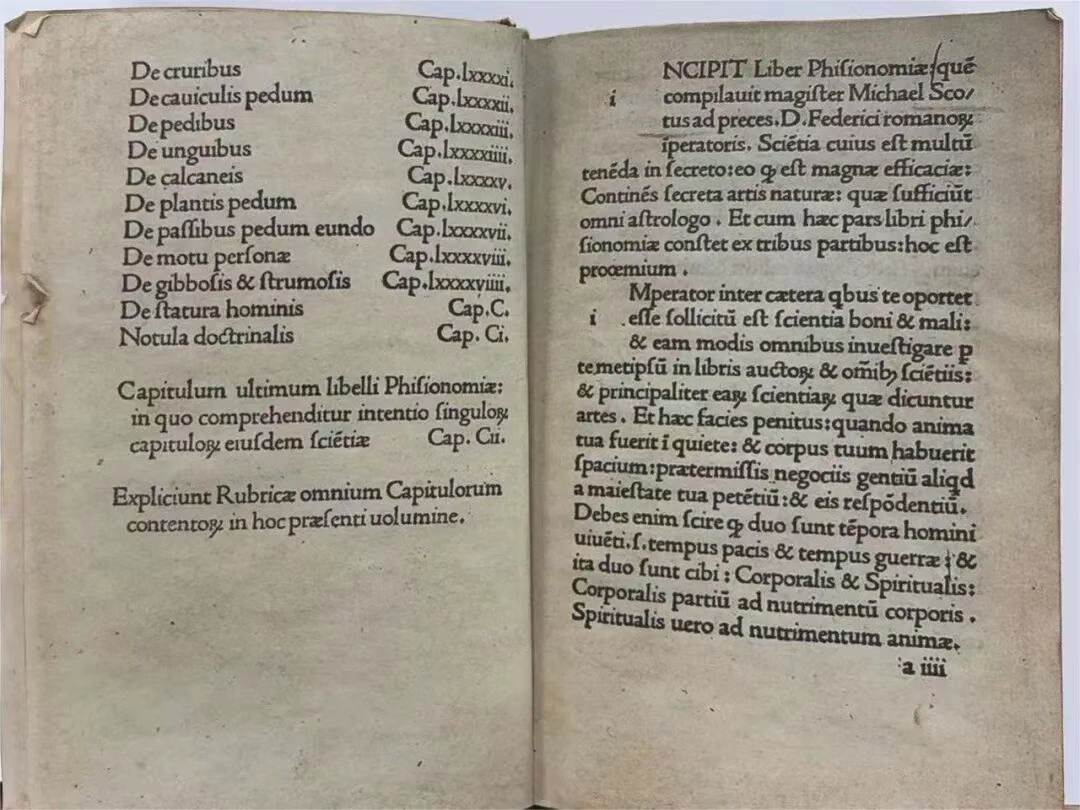 De cruribus Cap.lxxxxi.
De cauiculis pedum Cap.lxxxxii.
De pedibus Cap.lxxxxiii.
De unguibus Cap.lxxxxiiii.
De calcaneis Cap.lxxxxv.
De plantis pedum Cap.lxxxxvi.
De passibus pedum eundo Cap.lxxxxvii.
De motu personæ Cap.lxxxxviii.
De gibbosis & strumosis Cap.lxxxxviiii.
De statura hominis Cap.C.
Notula doctrinalis Cap. Ci.
Capitulum ultimum libelli Phisionomiæ:
in quo comprehenditur intentio singuloꝝ
capituloꝝ eiusdem sciẽtiæ Cap. Cii.
Expliciunt Rubricæ omnium Capitulorum
contentoꝝ in hoc præsenti uolumine.
NCIPIT Liber Phisionomiæ: quẽ
i compilauit magister Michael Sco/
tus ad preces.D.Federici romanoꝝ
ĩperatoris. Sciẽtia cuius est multũ
tenẽda in secreto: eo ꝙ est magnæ efficaciæ:
Continẽs secreta artis naturæ: quæ sufficiũt
omni astrologo. Et cum hæc pars libri phi/
sionomiæ constet ex tribus partibus: hoc est
prooemium.
Mperator inter cætera qbus te oportet
i esse sollicitũ est scientia boni & mali:
& eam modis omnibus inuestigare ꝑ
temetipsũ in libris auctoꝝ & om̃ibꝫ sciẽtiis:
& principaliter eaꝝ scientiaꝝ quæ dicuntur
artes. Et hæc facies penitus: quando anima
tua fuerit ĩ quiete: & corpus tuum habuerit
spacium: prætermissis negociis gentiũ aliqd
a maiestate tua petẽtiũ: & eis respõdentiũ.
Debes enim scire ꝙ duo sunt tẽpora homini
uiuẽti.s.tempus pacis & tempus guerræ: &
ita duo sunt cibi: Corporalis & Spiritualis:
Corporalis partiũ ad nutrimentũ corporis.
Spiritualis uero ad nutrimentum animæ.
a iiii